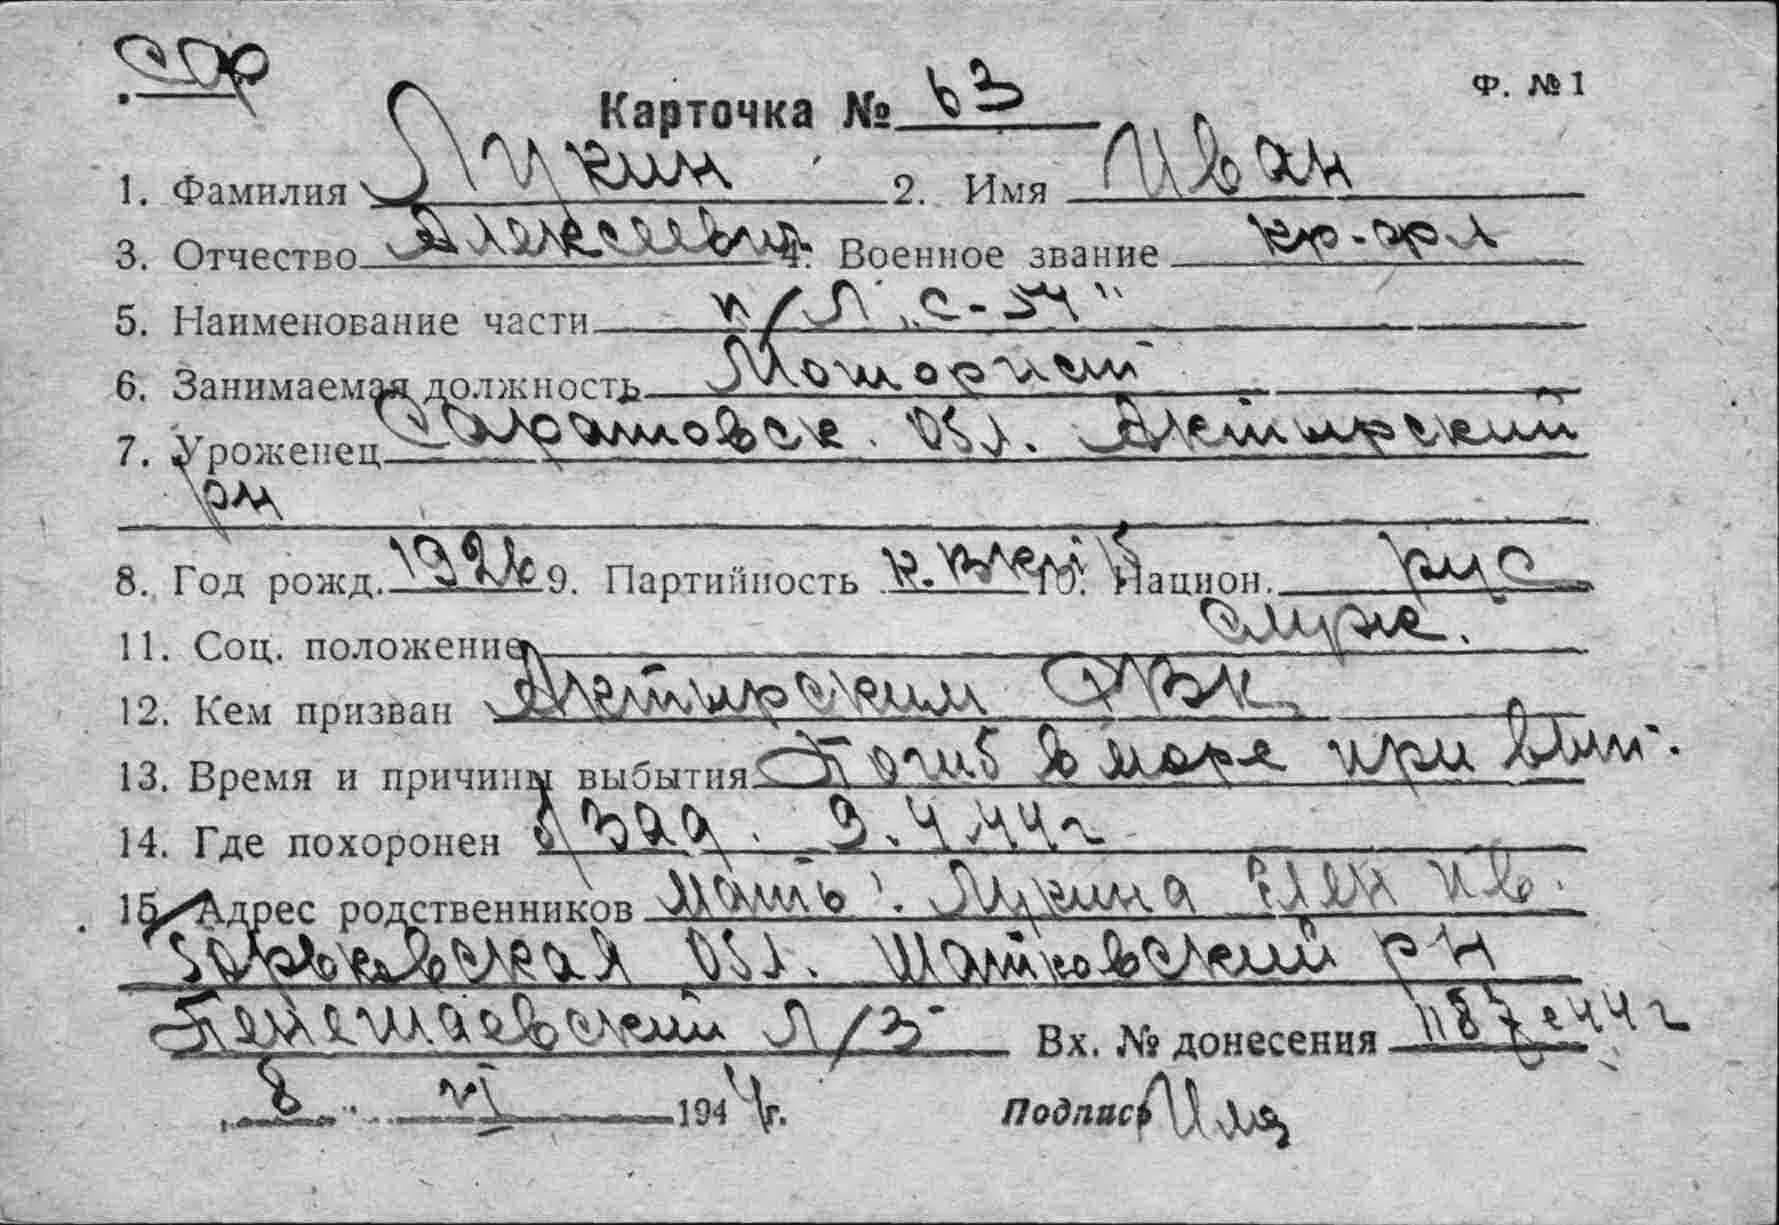 сар
Ф. № 1
Карточка № 63
1. Фамилия Лукин 2. Имя Иван
3. Отчество Алексеевич 4. Военное звание кр-фл
5. Наименование части п/Л „С-54"
6. Занимаемая должность Моторист
7. Уроженец Саратовск. обл. Актырский
рн
8. Год рожд. 1926 9. Партийность к. ВКП б 10. Национ. рус
11. Соц. положение служ.
12. Кем призван Актырским РВК
13. Время и причины выбытия Погиб в море при вып.
14. Где похоронен б/зад. 9.4.44г
15 Адрес родственников мать: Лукина Елен Ив.
Горьковская обл. Шатковский рн
Пенешаевский Л/З Вх. № донесения 1187с 44г
8 VI 1944г. Подпись